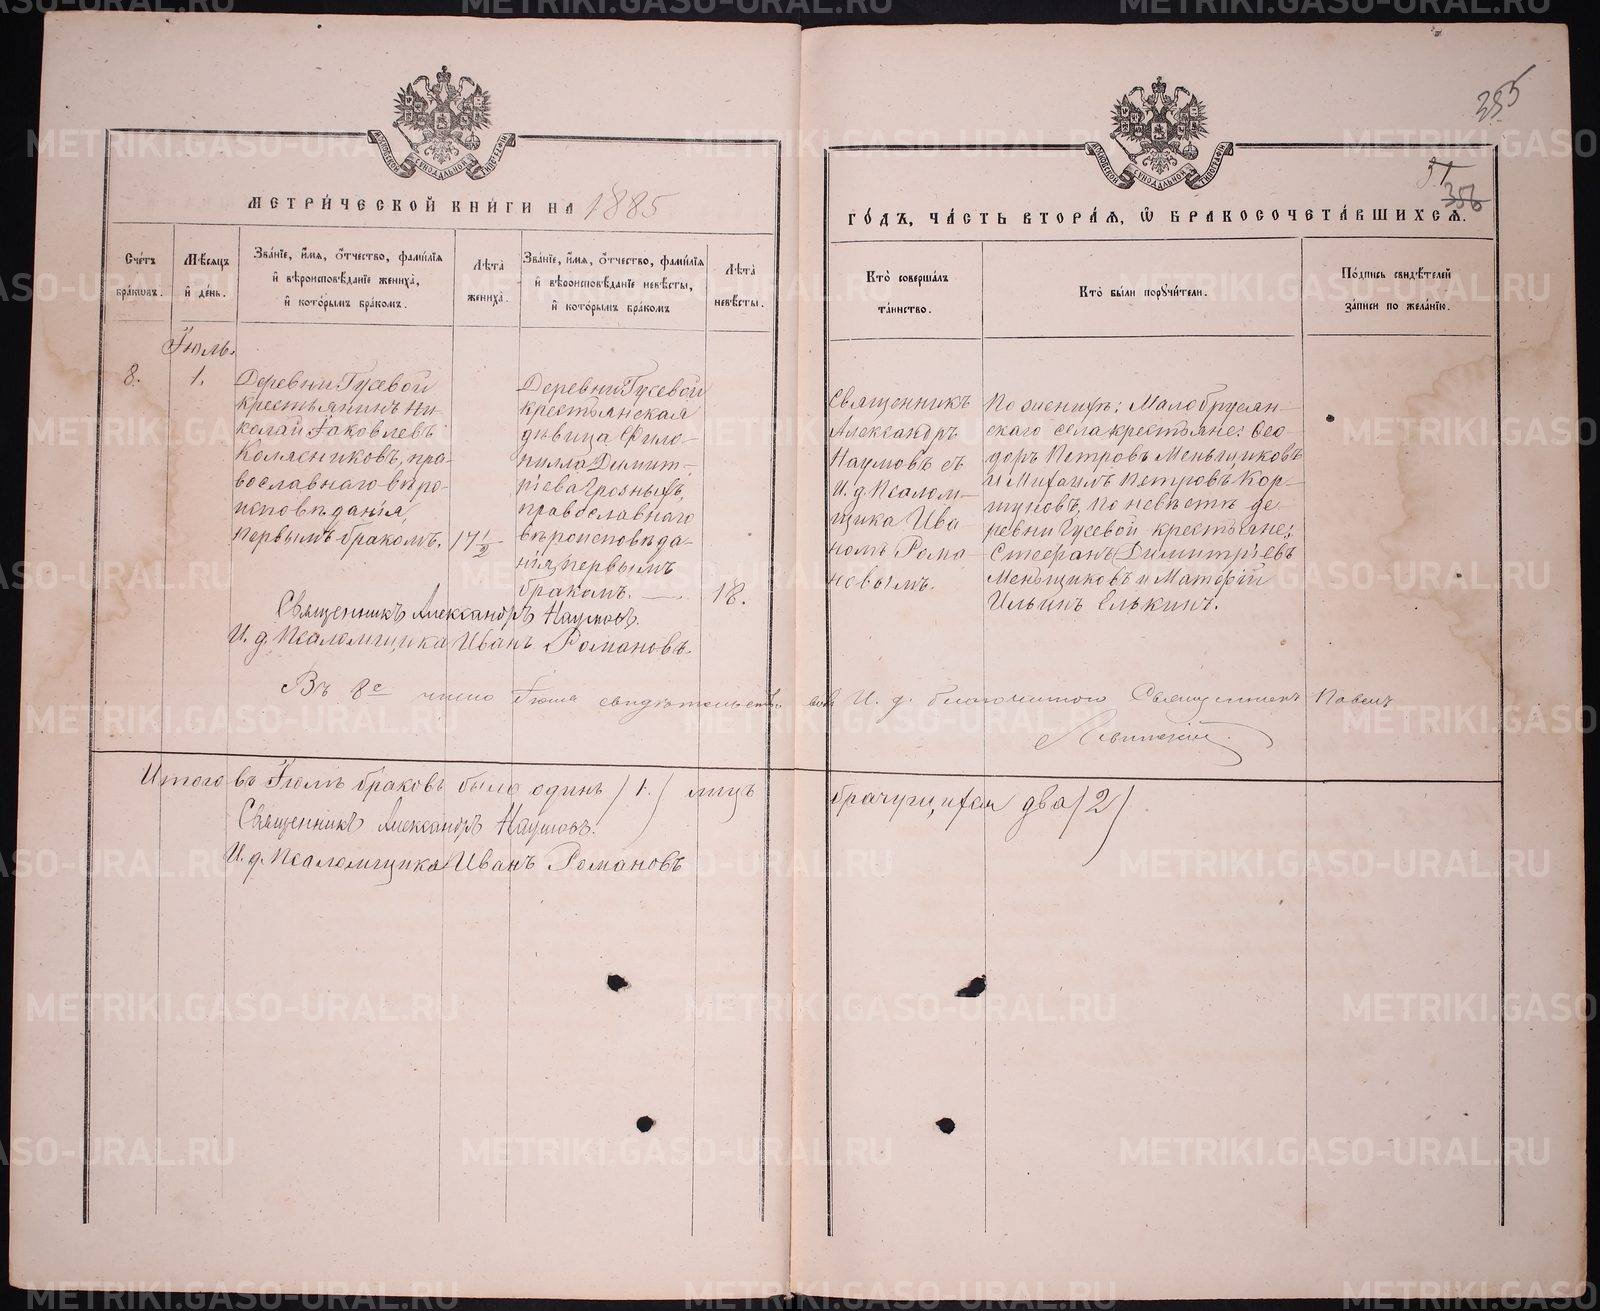 255
31
356
МЕТРИ́ЧЕСКОЙ КНИ́ГИ НА 1885
ГО́ДЪ, ЧА́СТЬ ВТОРА́Я, Ѡ БРАКОСОЧЕТА́ВШИХСЯ.
Сче́тъ
бра́ковъ.
Мѣ́сяцъ
и҆ де́нь.
Зва́нїе, и҆́мя, ѻ҆́тчество, фами́лїя
и҆ вѣроисповѣ́данїе жениха̀,
и҆ кото́рымъ бра́комъ.
Лѣ́та
жениха̀.
Зва́нїе, и҆́мя, ѻ҆́тчество, фами́лїя
и҆ вѣроисповѣ́данїе невѣ́сты,
и҆ кото́рымъ бра́комъ
Лѣ́та
невѣ́сты.
Кто̀ соверша́лъ
та́инство.
Кто̀ бы́ли порꙋчи́тели.
По́дпись свидѣ́телей
за́писи по жела́нїю.
Іюль.
8.
1.
Деревни Гусевой
крестьянинъ Ни-
колай Іаковлевъ
Колясниковъ, пра-
вославнаго вѣро-
исповѣданія,
первымъ бракомъ.
17 1/2
Деревни Гусевой
крестьянская
дѣвица Фило-
нилла Димит-
ріева Грозныхъ,
православнаго
вѣроисповѣда-
нія, первымъ
бракомъ.
18.
Священникъ
Александръ
Наумовъ съ
И. д. Псалом-
щика Ива
номъ Рома
новымъ.
По женихѣ: Малобрусян-
скаго села крестьяне: Ѳео-
доръ Петровъ Меньщиковъ
и Михаилъ Петровъ Кор-
шуновъ, по невѣстѣ де-
ревни Гусевой крестьяне:
Стефанъ Димитріевъ
Меньщиковъ и Матѳій
Ильинъ Елькинъ.
Священникъ Александръ Наумовъ.
И. д. Псаломщика Иванъ Романовъ.
Въ 8е число Іюля свидѣтельств. И. д. благочиннаго Священникъ Павелъ
Левитскій
Итого въ Іюлѣ браковъ было одинъ (1.) лицъ брачущихся два (2)
Священникъ Александръ Наумовъ.
И. д. Псаломщика Иванъ Романовъ
METRIKI.GASO-URAL.RU